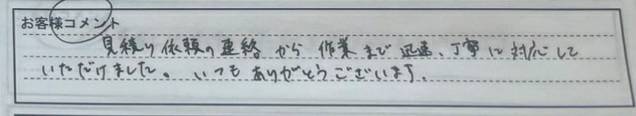 お客様コメント
見積り依頼の連絡から作業まで迅速、丁寧に対応して
いただけました。いつもありがとうございます。